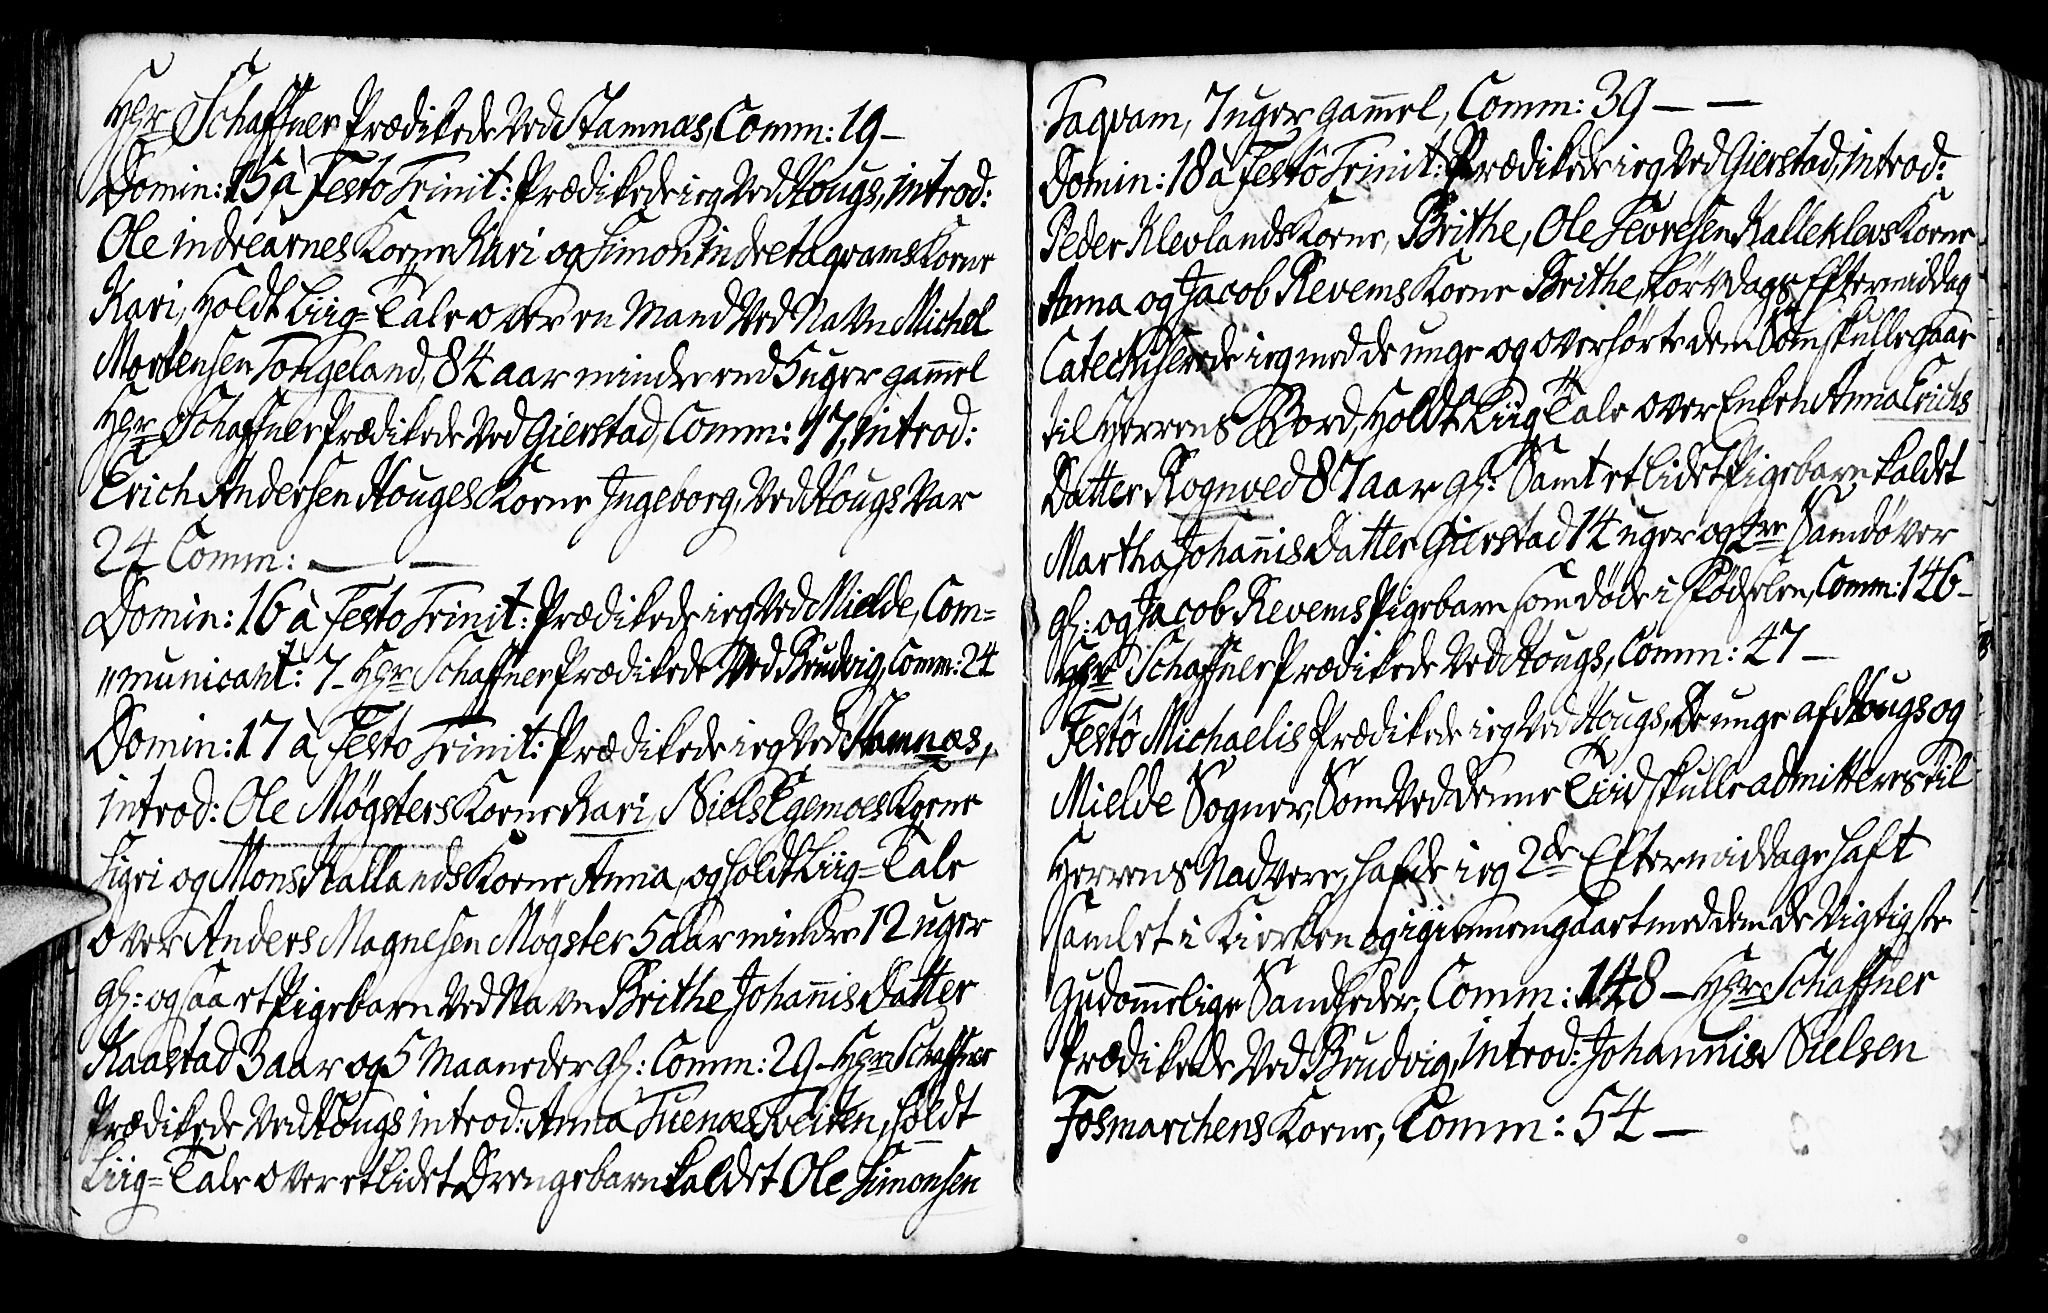 Hr Schaffner Prædikede Ved Stamnæs, Comm: 19 –
Domin: 15 à Festo Trinit: Prædikede ieg Ved Hougs, introd:
Ole indreārnes Kone Kari og Simon indretaqvams Kone
Kari, Holdt Liig=Tale over en Mand Ved Navn Michel
Mortensen Tongeland, 84 aar mindre end 5 uger gam̄el
Hr Schaffner Prædikede Ved Gierstad, Comm: 17, introd:
Erich Andersen Houges Kone Ingeborg, Ved Hougs Var
24 Comm: — —
Domin: 16 à Festo Trinit: Prædikede ieg Ved Mielde, Com=
„municant: 7 – Hr Schaffner Prædikede Ved Brudvig, Comm: 24
Domin: 17 à Festo Trinit: Prædikede ieg Ved Stamnæs,
introd: Ole Møgsters Kone Kari, Niels Egemoes Kone
Sigri og Mons Hallands Kone Anna, og holdt Liig=Tale
over Anders Magnesen Møgster 5 aar mindre 12 uger
gl: og saa et Pigebarn Ved Navn Brithe Johan̄is Datter
Kaastad 3 aar og 5 Maaneder gl: Comm: 29 – Hr Schaffner
Prædikede Ved Hougs introd: Anna Tuenæs Tveiten, holdt
Liig=Tale over et lidet Drengebarn kaldet Ole Simonsen
Taqvam, 7 uger gam̄el, Comm: 39 — —
Domin: 18 à Festô Trinit: Prædikede ieg Ved Gierstad, introd:
Peder Klevlands Kone, Brithe, Ole Sevresen Kalleklevs Kone
Anna og Jacob Revems Kone Brithe, Lørvdags Eftermiddag
Catechiserede ieg med de unge og overhørte dem Som skulle gaae
til Herrens Bord, Holdt Liig Tale over Enken Anna Erichs
Datter Rognved 87 aar gl: Samt et lidet Pigebarn kaldet
Martha Johan̄is Datter Gierstad 14 uger og 2de Samdøver
gl: og Jacob Revems Pigebarn som døde i Fødselen, Comm: 146 –
Hr Schaffner Prædikede Ved Hougs, Comm: 47 –
Festô Michaelis Prædikede ieg Ved Hougs, De unge af Hougs og
Mielde Sogner, Som Ved denne Tiid skulle admitteres til
Herrens Nadvere, hafde ieg 2de Eftermiddage haft
Samlet i Kierken og igiennemgaaet med dem de Vigtigste
gudom̄elige Sandheder, Comm: 148 – Hr Schaffner
Prædikede Ved Brudvig, introd: Johannis Nielsen
Fosmarchens Kone, Comm: 54 —